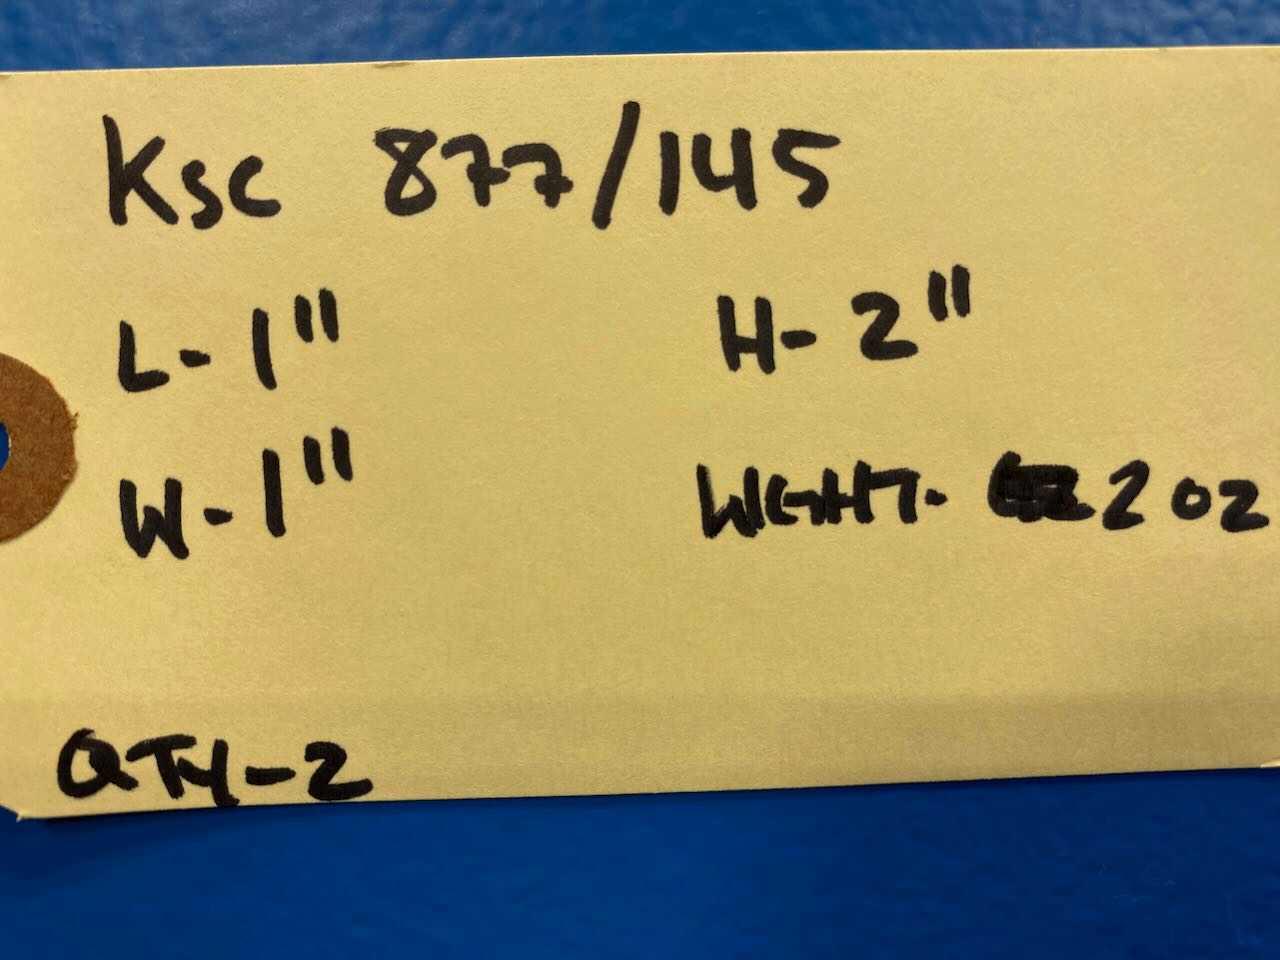 Ksc 877/145
L-1" H-2"
W-1" WGHT- 2 oz
QTY-2